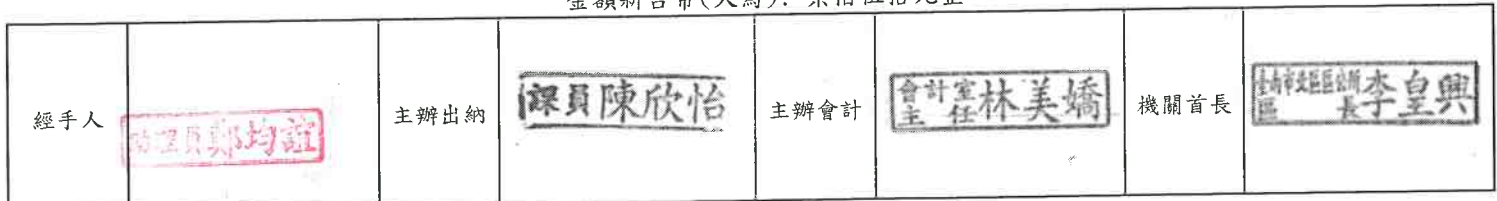 金額新台幣(大寫): 柒佰伍拾元整
經手人
助理員鄭均誼
主辦出納
課員陳欣怡
主辦會計
會計室主任林美嬌
機關首長
臺南市北區區公所區長李皇興